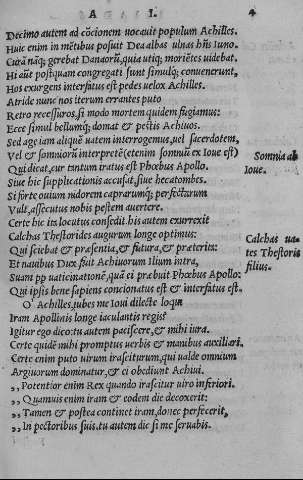 A I. 4
Decimo autem ad cōcionem uocauit populum Achilles.
Huic enim in mētibus posuit Dea albas ulnas hñs Iuno.
Curā nāq; gerebat Danaorū, quia utiq; moriētes uidebat.
Hi aūt postquam congregati sunt simulq; conuenerunt,
Hos exurgens interfatus est pedes uelox Achilles.
Atride nunc nos iterum errantes puto
Retro recessuros, si modo mortem quidem fugiamus:
Ecce simul bellumq; domat & pestis Achiuos.
Sed age iam aliquē uatem interrogemus, uel sacerdotem,
Vel & somniorū interpretē(etenim somniū ex Ioue est)
Somnia ab
Ioue.
Qui dicat, cur tantum iratus est Phœbus Apollo.
Siue hic supplicationis accusat, siue hecatombes.
Si forte ouium nidorem caprarumq; perfectarum
Vult, assecutus nobis pestem auertere.
Certe hic ita locutus consedit: his autem exurrexit
Calchas Thestorides augurum longe optimus:
Calchas ua-
tes Thestoris
filius.
Qui sciebat & præsentia, & futura, & præterita:
Et nauibus Dux fuit Achiuorum Ilium intra,
Suam pp uaticinationē, quā ei præbuit Phœbus Apollo:
Qui ipsis bene sapiens concionatus est & interfatus est.
O Achilles, iubes me Ioui dilecte loqui
Iram Apollinis longe iaculantis regis
Igitur ego dico: tu autem paciscere, & mihi iura.
Certe quidē mihi promptus uerbis & manibus auxiliari.
Certe enim puto uirum irasciturum, qui ualde omnium
Arguorum dominatur, & ei obediunt Achiui.
,, Potentior enim Rex quando irascitur uiro inferiori.
,, Quamuis enim iram & eodem die decoxerit:
,, Tamen & postea continet iram, donec perfecerit,
,, In pectoribus suis. tu autem dic si me seruabis.